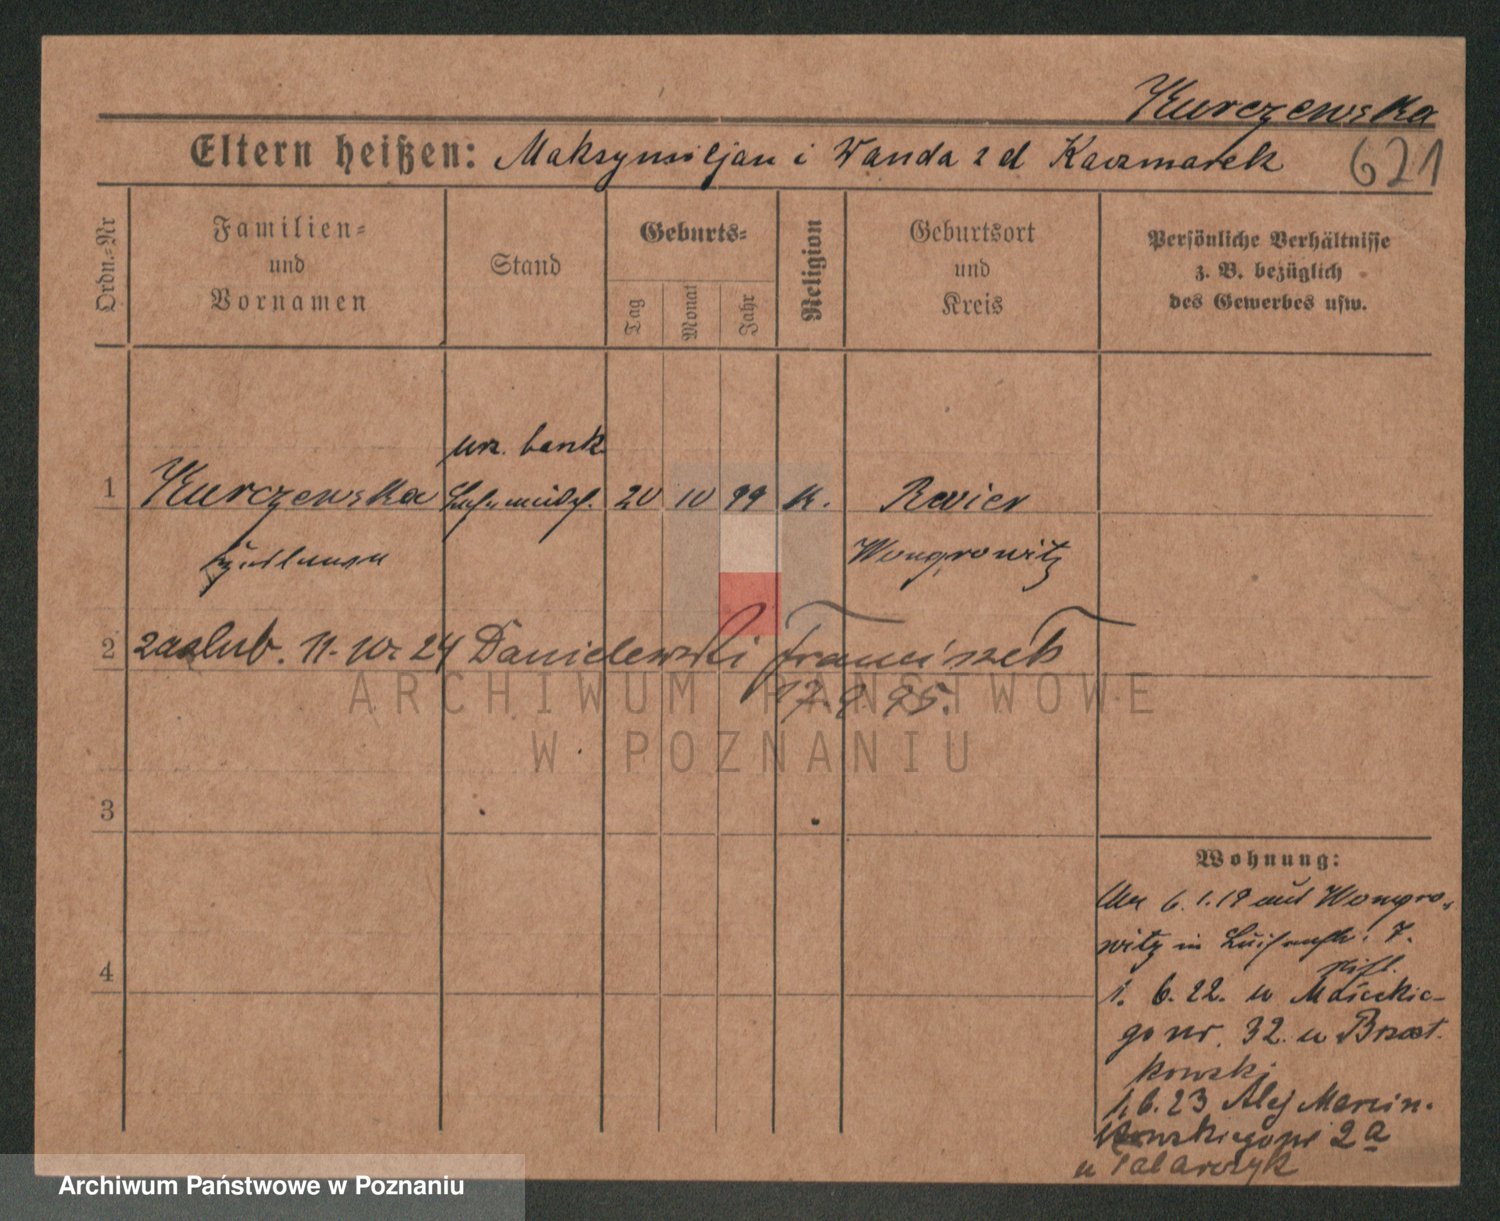 Kurczewska
Eltern heißen: Maksymiljan i Wanda z d Kaczmarek 621
Ordn.-Nr
Familien-
und
Vornamen
Stand
Geburts-
Tag
Monat
Jahr
Religion
Geburtsort
und
Kreis
Persönliche Verhältnisse
z. B. bezüglich
des Gewerbes usw.
urz. bank
1 Kurczewska 20 10 99 K. Revier
Wongrowitz
2 zaślub. 11.10.24 Danielewski Franciszek
17.9.95.
ARCHIWUM PAŃSTWOWE
W POZNANIU
3
4
Wohnung:
6.1.19 aus Wongro-
witz in Luisenstr. 7.
1. 6. 22. w Maśeckie-
go nr. 32. u Brzost.
kowski
1.6.23 Alej Marcin.
kowskiego nr 2a
u Talarczyk
Archiwum Państwowe w Poznaniu